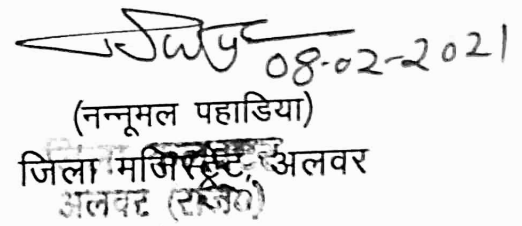 08-02-2021
(नन्नूमल पहाडिया)
जिला मजिस्ट्रेट, अलवर
अलवर (राज0)